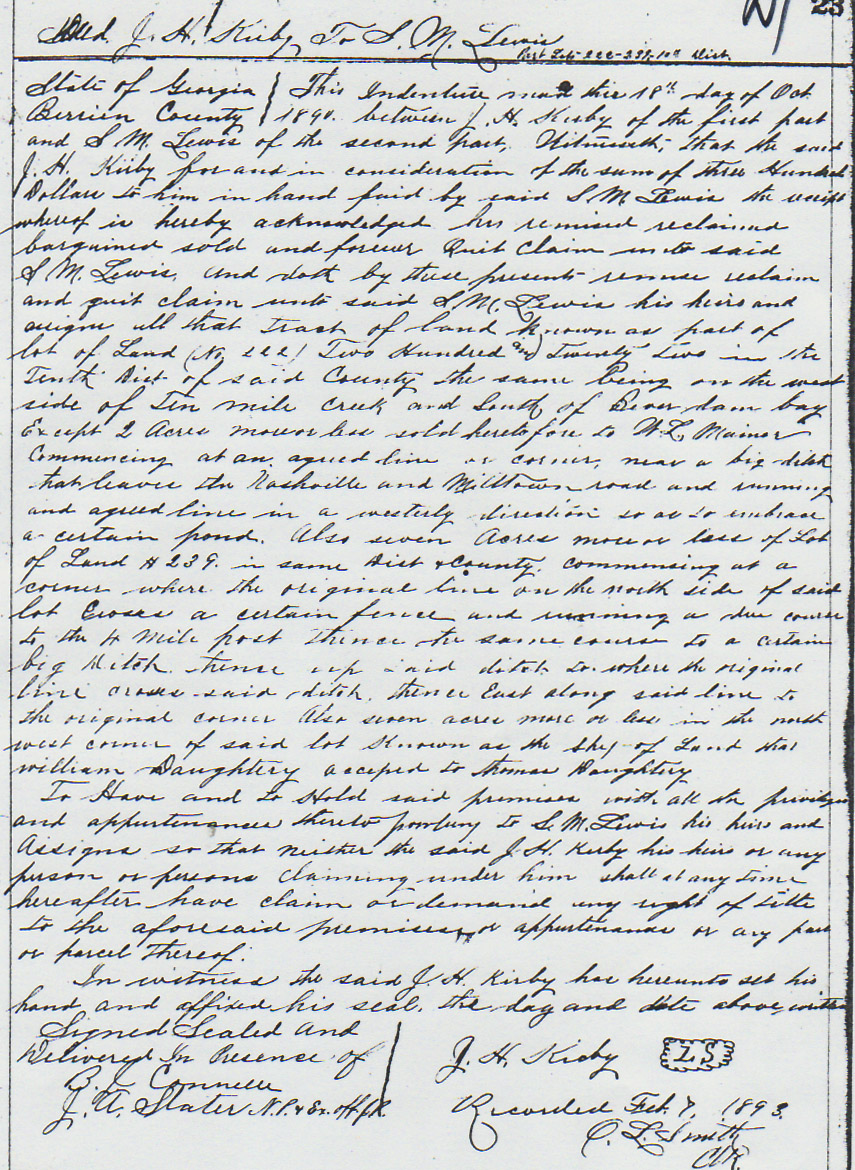 23
Deed. J. H. Kirby To S. M. Lewis
Part Lots 222-239. 10th Dist.
State of Georgia } This Indenture made this 18th day of Oct
Berrien County } 1890. between J. H. Kirby of the first part
and S M. Lewis of the second part, Witnesseth, that the said
J. H. Kirby for and in consideration of the sum of three Hundred
Dollars to him in hand paid by said S M Lewis the receipt
whereof is hereby acknowledged has remised reclaimed
bargained sold and forever Quit Claim unto said
S M. Lewis, and doth by these presents remise reclaim
and quit claim unto said S M. Lewis his heirs and
assigns all that tract of land known as part of
lot of Land (No. 222) Two Hundred and Twenty Two in the
Tenth Dist of said County the same being on the west
side of Ten mile Creek and South of Bever dam bay
Except 2 Acres more or less sold heretofore to W. L. Mainor
Commencing at an agued line or corner, near a big ditch
that leaves the Nashville and Milltown road and running
and agreed line in a westerly direction so as to embrace
a certain pond. Also seven Acres more or less of Lot
of Land # 239. in same Dist & County. commencing at a
corner where the original line on the north side of said
lot Croses a certain fence and running a due course
to the 4 Mile post thence the same course to a certain
big Ditch thence up said ditch to where the original
line croses said ditch, thence East along said line to
the original corner Also seven acres more or less in the north
west corner of said lot Known as the of Land that
william Daughtery to Thomas Daughtery
To Have and to Hold said premises with all the privileges
and appurtenances thereto to S. M. Lewis his heirs and
Assigns so that neither the said J. H. Kirby his heirs or any
person or persons claiming under him shall at any time
hereafter have claim or demand any right of title
to the aforesaid premises or appurtenance or any part
or parcel thereof.
In witness the said J. H. Kirby has hereunto set his
hand and affixed his seal. the day and date above written
Signed Sealed and
Delivered In Presence of
J. H. Kirby L S
B. J. Connell
J. A. Slater N.P. & Ex. off J.P.
Recorded Feb. 7, 1893.
C. L. Smith
Clk